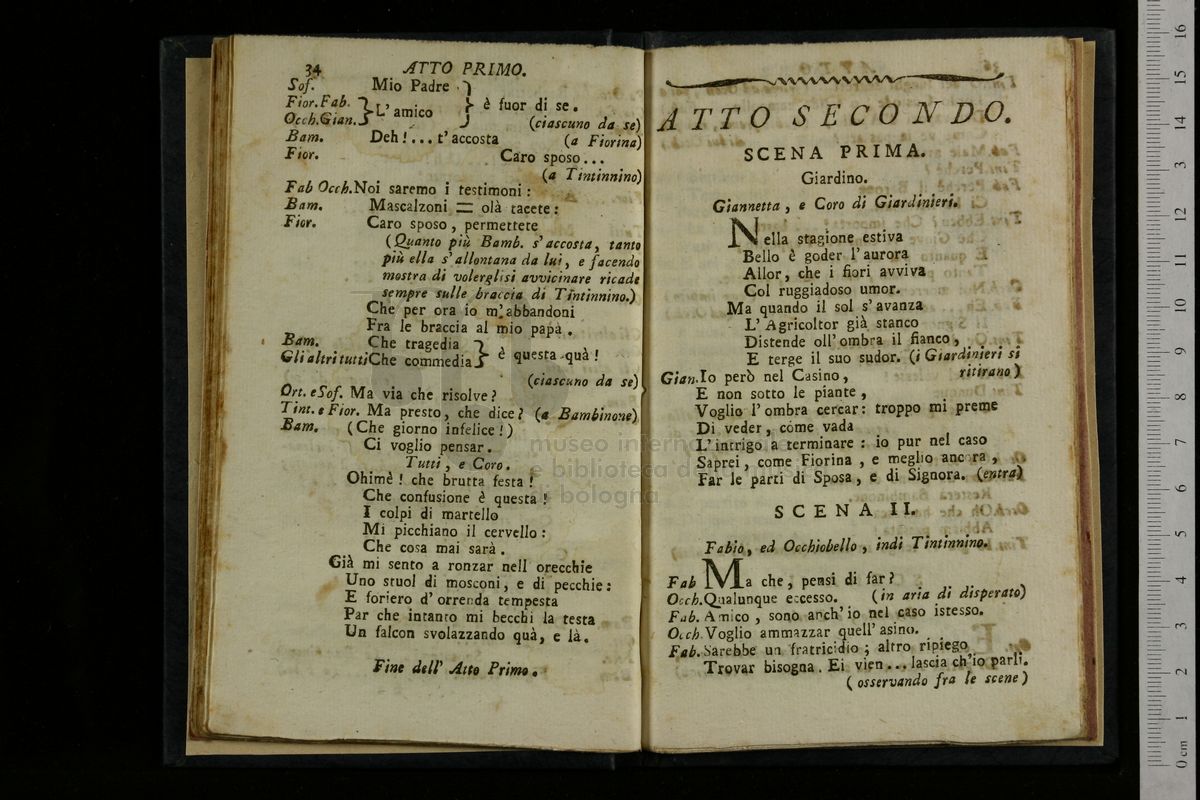 34 ATTO PRIMO.
Sof. Mio Padre }
Fior. Fab. } L' amico } è fuor di se.
Occh. Gian. } (ciascuno da se)
Bam. Deh!... t' accosta (a Fiorina)
Fior. Caro sposo...
(a Tintinnino)
Fab Occh. Noi saremo i testimoni:
Bam. Mascalzoni = olà tacete:
Fior. Caro sposo, permettete
(Quanto più Bamb. s' accosta, tanto
più ella s' allontana da lui, e facendo
mostra di volerglisi avvicinare ricade
sempre sulle braccia di Tintinnino.)
Che per ora io m' abbandoni
Fra le braccia al mio papà.
Bam. Che tragedia }
Gli altri tutti Che commedia } è questa quà!
(ciascuno da se)
Ort. e Sof. Ma via che risolve?
Tint. e Fior. Ma presto, che dice? (a Bambinone)
Bam. (Che giorno infelice!)
Ci voglio pensar.
Tutti, e Coro.
Ohimè! che brutta festa!
Che confusione è questa!
I colpi di martello
Mi picchiano il cervello:
Che cosa mai sarà.
Già mi sento a ronzar nell orecchie
Uno stuol di mosconi, e di pecchie:
E foriero d' orrenda tempesta
Par che intanto mi becchi la testa
Un falcon svolazzando quà, e là.
Fine dell' Atto Primo.
ATTO SECONDO.
SCENA PRIMA.
Giardino.
Giannetta, e Coro di Giardinieri.
Nella stagione estiva
Bello è goder l' aurora
Allor, che i fiori avviva
Col ruggiadoso umor.
Ma quando il sol s' avanza
L' Agricoltor già stanco
Distende oll' ombra il fianco,
E terge il suo sudor. (i Giardinieri si
ritirano)
Gian. Io però nel Casino,
E non sotto le piante,
Voglio l' ombra cercar: troppo mi preme
Di veder, come vada
L' intrigo a terminare: io pur nel caso
Saprei, come Fiorina, e meglio ancora,
Far le parti di Sposa, e di Signora. (entra)
SCENA II.
Fabio, ed Occhiobello, indi Tintinnino.
Fab Ma che, pensi di far?
Occh. Qualunque eccesso. (in aria di disperato)
Fab. Amico, sono anch' io nel caso istesso.
Occh. Voglio ammazzar quell' asino.
Fab. Sarebbe un fratricidio; altro ripiego
Trovar bisogna. Ei vien... lascia ch' io parli.
(osservando fra le scene)
museo internazionale
e biblioteca della musica
bologna
0 cm 1 2 3 4 5 6 7 8 9 10 11 12 13 14 15 16